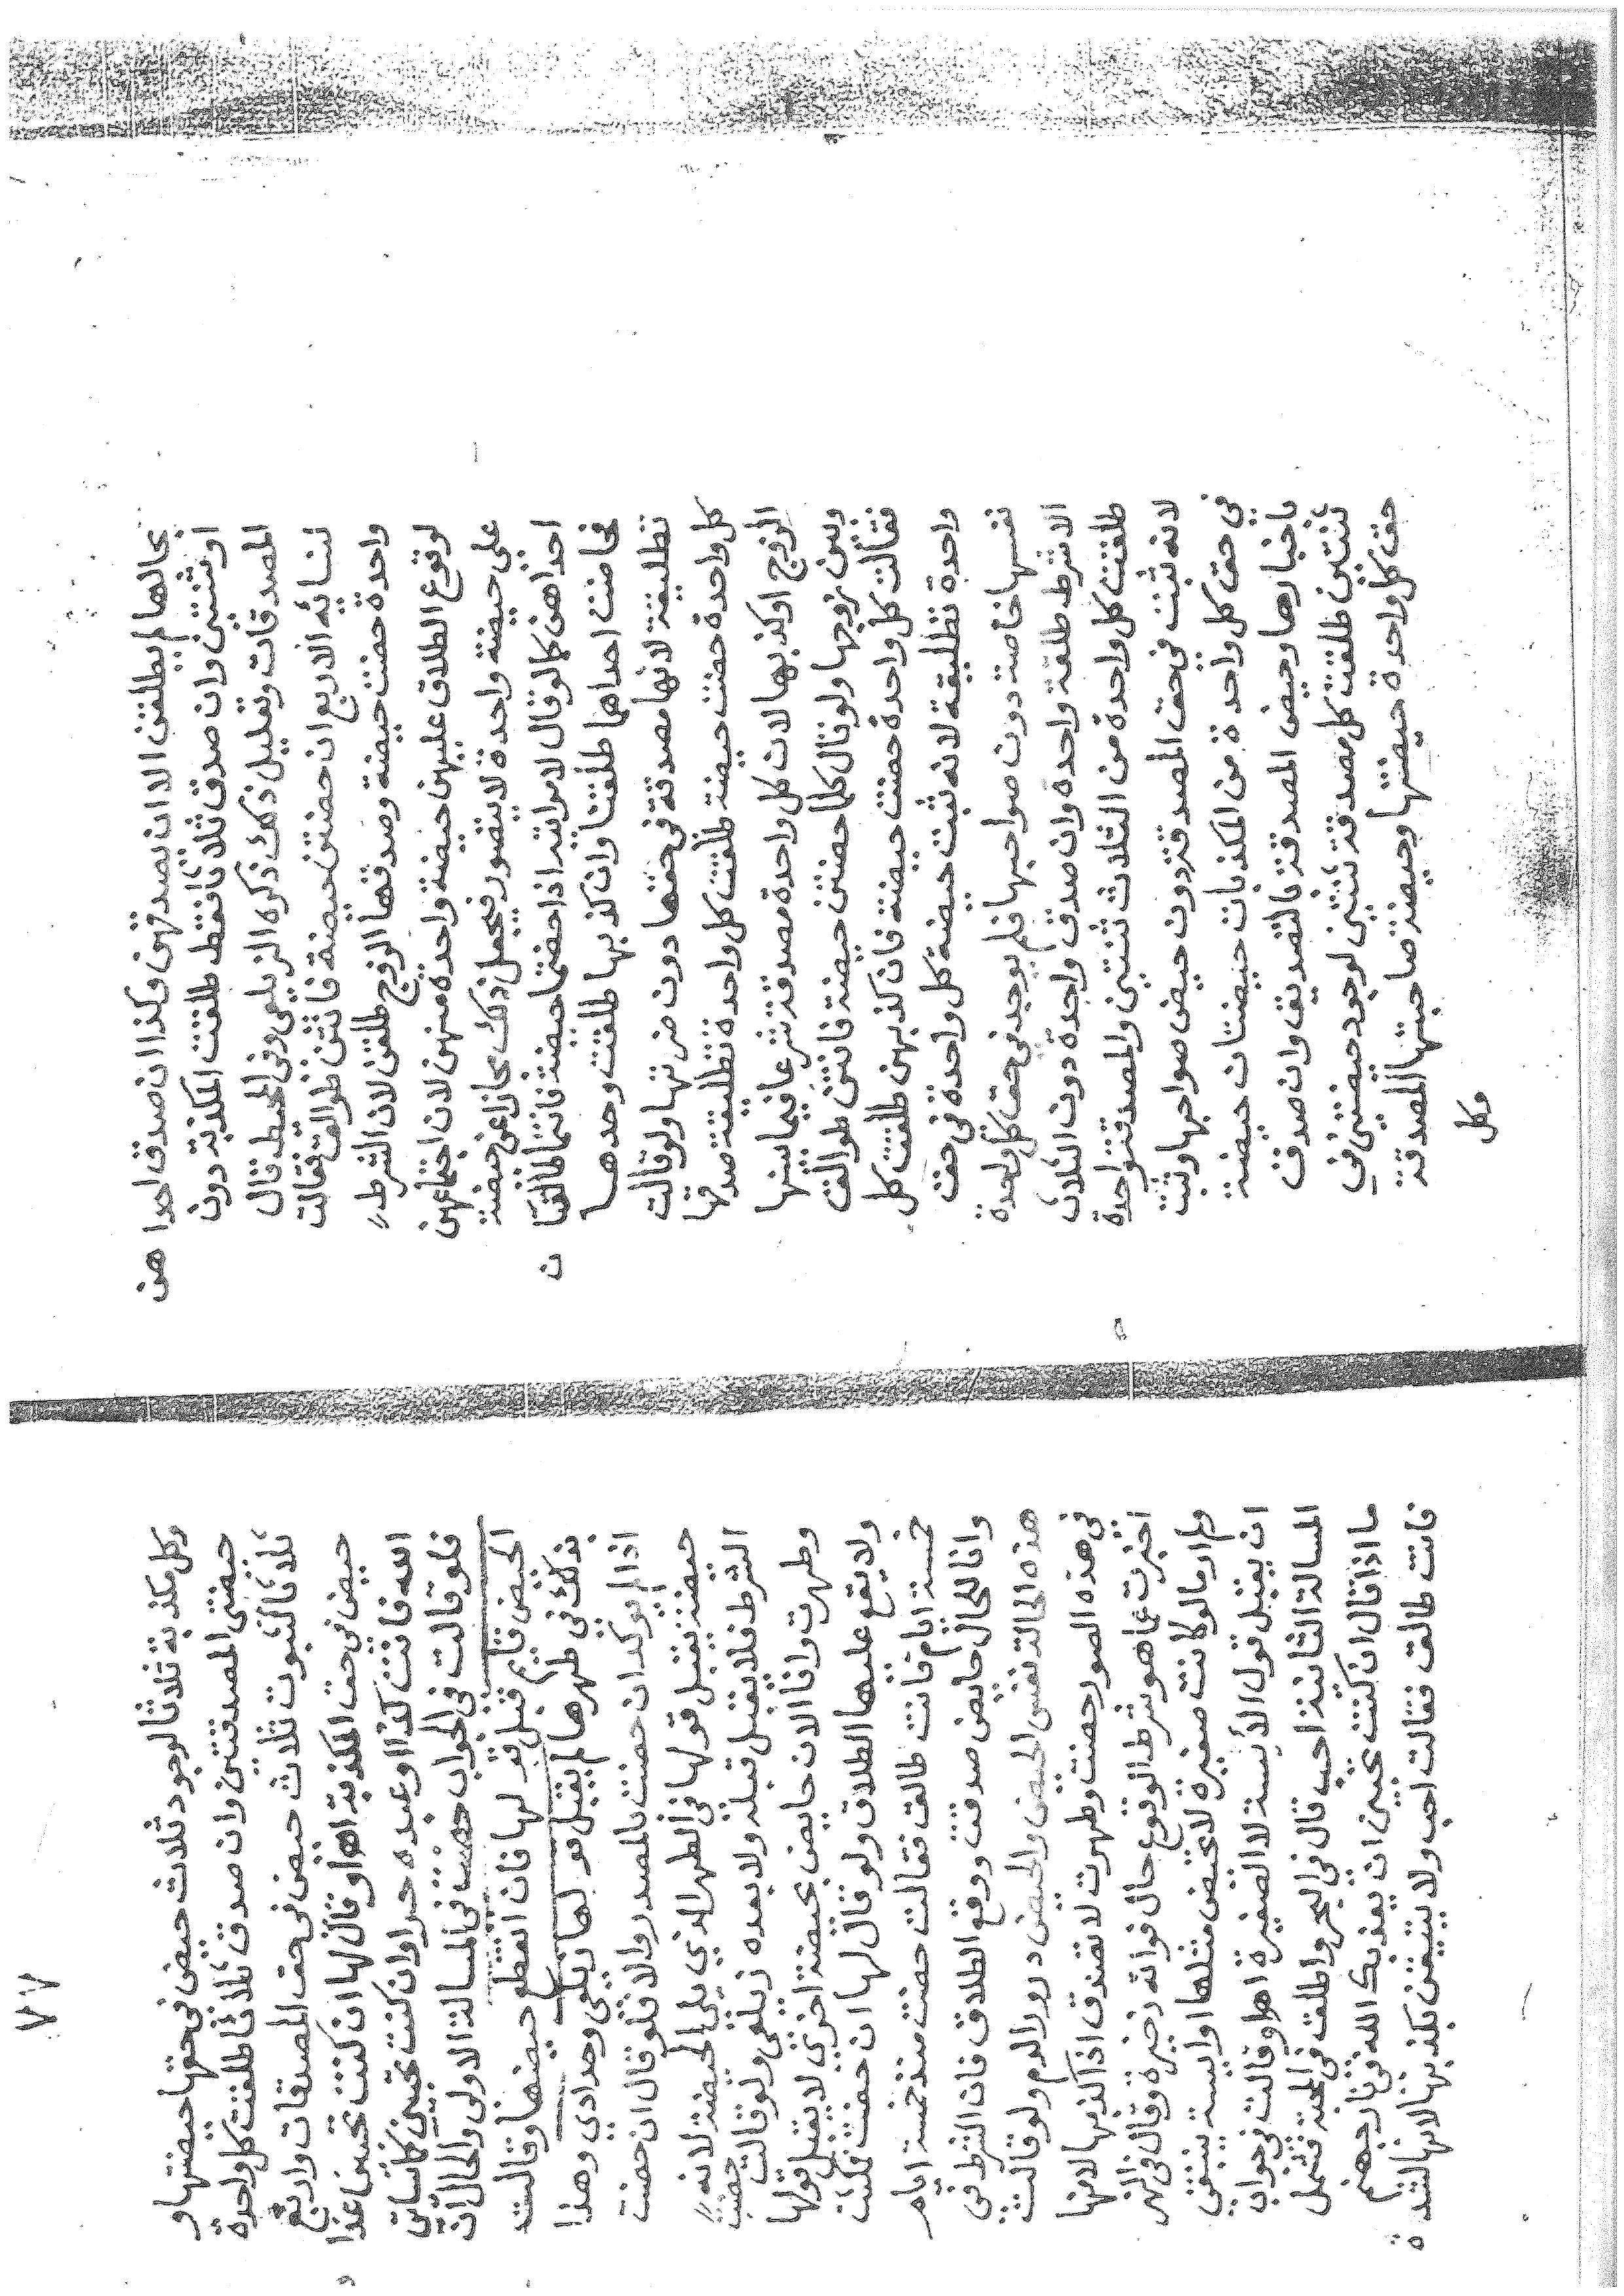 بحالها لم يطلقن الا ان يصدقهن وكذا ان صدق احداهن
او ثنتين وان صدق ثلاثا فقط طلقت المكذبة دون
المصدقات وتعليل ذلك ذكره الزيلعي وفي المحيط قال
لنسائه الاربع ان حضتن حيضة فانتن طوالق فقالت
واحدة حضت حيضة وصدقها الزوج طلقن لان الشرط
لوقوع الطلاق عليهن حيضة واحدة منهن لان اجتماعهن
على حيضة واحدة لا يتصور فيجعل ذلك مجازا عن حيضة
احداهن كما لو قال لامراتيه اذا حضتما حيضة فانتما طالقتان
فحاضت احداهما طلقتا وان كذبها طلقت وحدها
تطليقة لانها مصدقة في حقها دون ضرتها ولو قالت
كل واحدة حضت حيضة طلقت كل واحدة تطليقة صدقها
الزوج او كذبها لان كل واحدة مصدقة شرعا فيما بينها
وبين زوجها ولو قال كلما حضتن حيضة فانتن طوالق
فقالت كل واحدة حضت حيضة فان كذبهن طلقت كل
واحدة تطليقة لانه ثبت حيضة كل واحدة في حق
نفسها خاصة دون صواحبها فلم يوجد في حق كل واحدة
الا شرط طلقة واحدة وان صدق واحدة دون الثلاث
طلقت كل واحدة من الثلاث ثنتين والمصدقة واحدة
لانه ثبت في حق المصدقة دون حيض صواحبها وثبت
في حق كل واحدة من المكذبات حيضتان حيضة
باخبارها وحيض المصدقة بالتصديق وان صدق
ثنتين طلقت كل مصدقة ثنتين لوجود حيضتين في
حق كل واحدة حيضتها وحيضة صاحبتها المصدقة
وكل
٧٧
وكل مكذبة ثلاثا لوجود ثلاث حيض في حقها حيضتها و
حيضتي المصدقتين وان صدق ثلاثا طلقت كل واحدة
ثلاثا لثبوت ثلاث حيض في حق المصدقات واربع
حيض في حق المكذبة اهـ او قال لها ان كنت تحبين عذاب
الله فانت كذا او عبده حر او ان كنت تحبيني فانت
فلو قالت في الجواب حضت في المسالة الاولى والحال ان
الحيض قايم قبل قولها فان انقطع حيضها وقالت
بذلك في طهرها لم يقبل قولها زيلعي وحدادي وهذا
اذا لم يوكد ان حضت بالمصدر والا فلو قال ان حضت
حيضة يقبل قولها في الطهر الذي يلي الحيضة لانه
الشرط فلا يقبل قبله ولا بعده زيلعي ولو قالت حضت
وطهرت وانا الان حايض بحيضة اخرى لا يقبل قولها
ولا يقع عليها الطلاق ولو قال لها ان حضت
خمسة ايام فانت طالق فقالت حضت منذ خمسة ايام
وانا للحال حايض صدقت ووقع الطلاق فان الشرط في
هذه الحالة نفس الحيض والحيض درور الدم ولو قالت
في هذه الصور حضت وطهرت لا تصدق اذا كذبها لانها
اخبرت عما هو شرط الوقوع حال فواته ذخيرة وقال في النهر
ولم ار ما لو كانت صغيرة لا تحيض مثلها او ايسة ينبغي
ان يقبل قول الآيسة لا الصغيرة اهـ او قالت في جواب
المسالة الثانية احب قال في البحر واطلق في المحبة فشمل
ما اذا قال ان كنت تحبين ان يعذبك الله في نار جهنم
فانت طالق فقالت احب ولا يتيقن بكذبها لانها لشدة